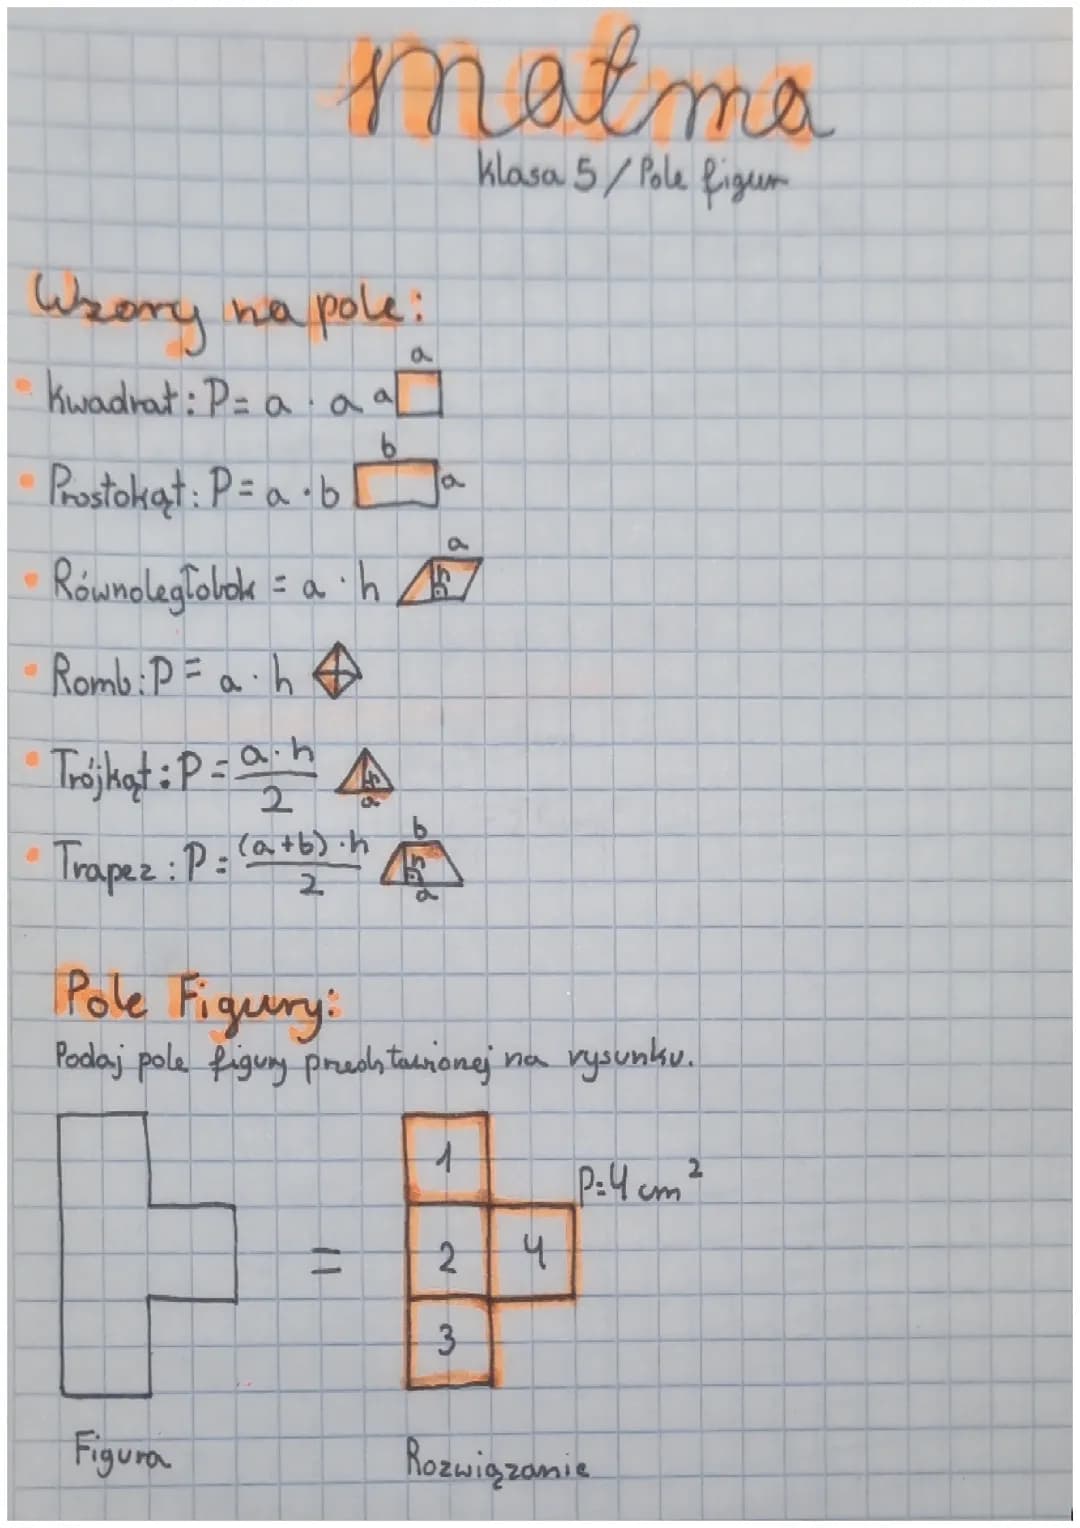 matma
klasa 5 / Pole figur
Wzory na pole:
• Kwadrat: P = a · a
a
a
• Prostokąt: P = a · b
b
a
• Równoległobok = a · h
a
h
• Romb: P = a · h
• Trójkąt: P = a · h / 2
h
a
• Trapez: P = (a + b) · h / 2
b
h
a
Pole Figury:
Podaj pole figury przedstawionej na rysunku.
1
P=4 cm²
=
2
4
3
Figura
Rozwiązanie